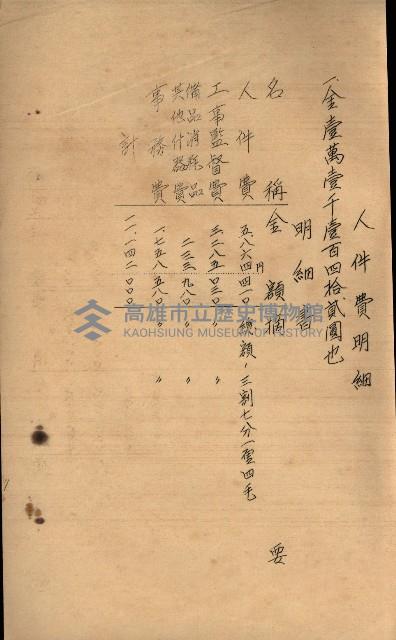 人件費明細
一、金壹萬壹千壹百四拾貳圓也
明細書
名稱 金額 摘要
人件費 五八六四円四一〇 總額ノ三割七分一厘四毛
工事監督費 三二八五〇三〇 〃 〃
備品消耗品其他什器費 二三三九八〇 〃 〃
事務費 一七五八五八〇 〃 〃
計 一一一四二〇〇〇
高雄市立歷史博物館
KAOHSIUNG MUSEUM OF HISTORY